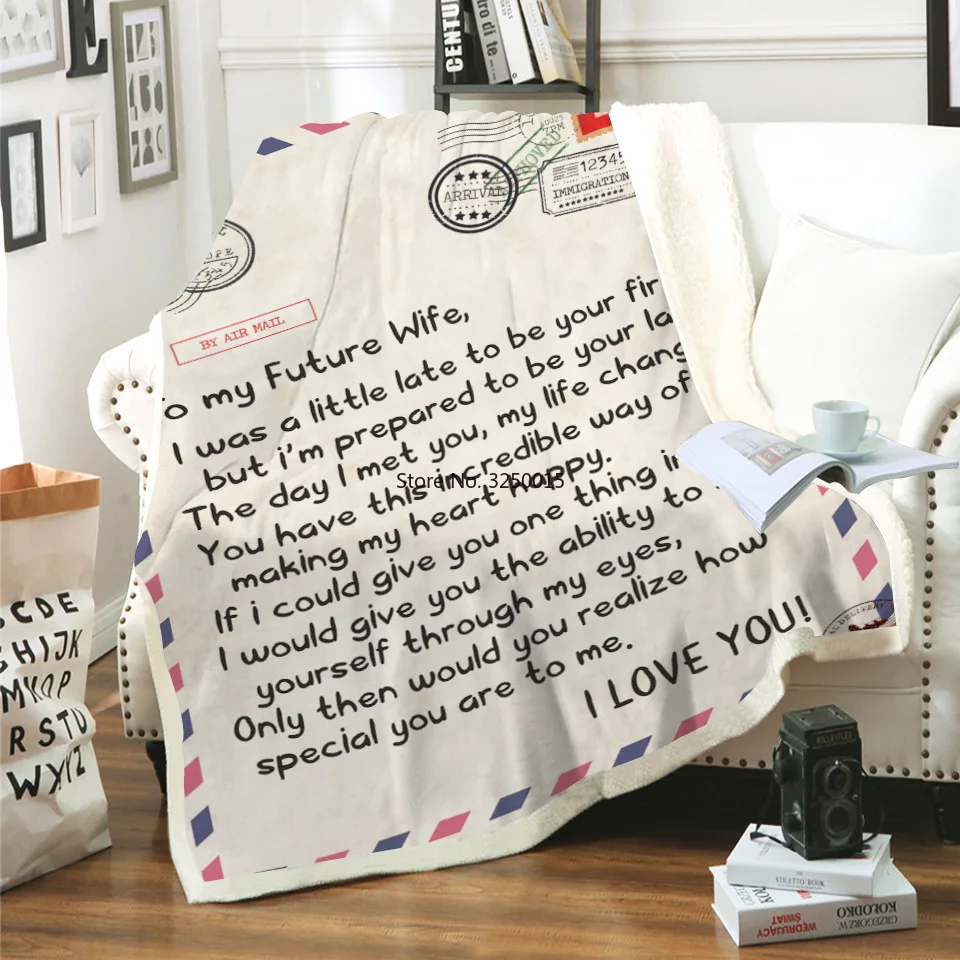 CENTU
tro di te
7PM
ARRIVAL
12345
IMMIGRATION
BY AIR MAIL
o my Future Wife,
I was a little late to be your fir
but i'm prepared to be your la
The day I met you, my life chang
You have this incredible way of
making my heart happy.
If i could give you one thing in
I would give you the ability to
yourself through my eyes,
Only then would you realize how
special you are to me.
I LOVE YOU!
Store No. 3250013
CDE
GHIJK
MNOP
RSTU
WXYZ
ROLLEIFLEX
STILETTO BOOK
GRZEGORZ W.
KOŁODKO
WĘDRUJĄCY
ŚWIAT